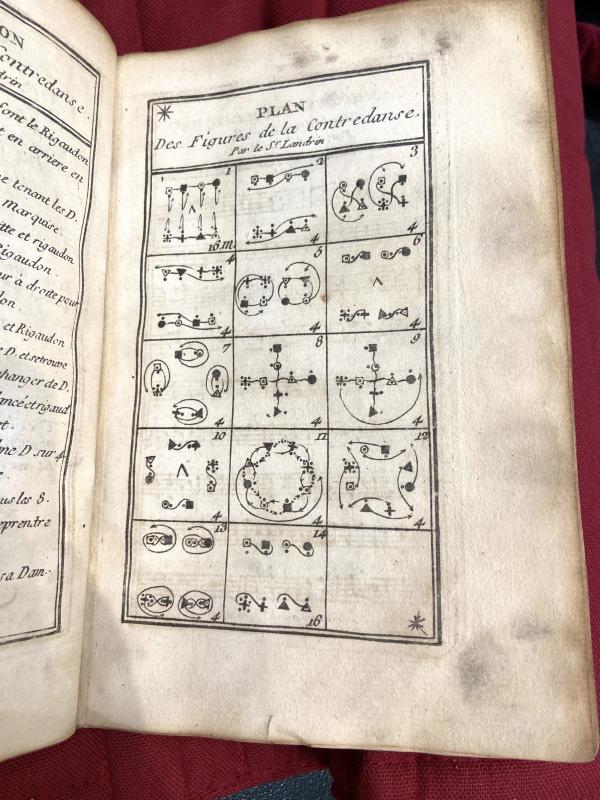 ON
Contredanse.
drin
font le Rigaudon
t en arriere en
e tenant les D.
Marquise.
tte et rigaudon
Rigaudon.
ur à droite pour
don.
et Rigaudon
e D. et se trouve
changer de D.
lancé et rigaud
et.
me D sur 4.
e.
ous les 8.
reprendre
sa Dam.
PLAN
Des Figures de la Contredanse.
Par le Sr. Landrin
1 2 3
16 m. 4 4
4 5 6
4 4 4
7 8 9
4 4 4
10 11 12
4 4 4
13 14
4 16